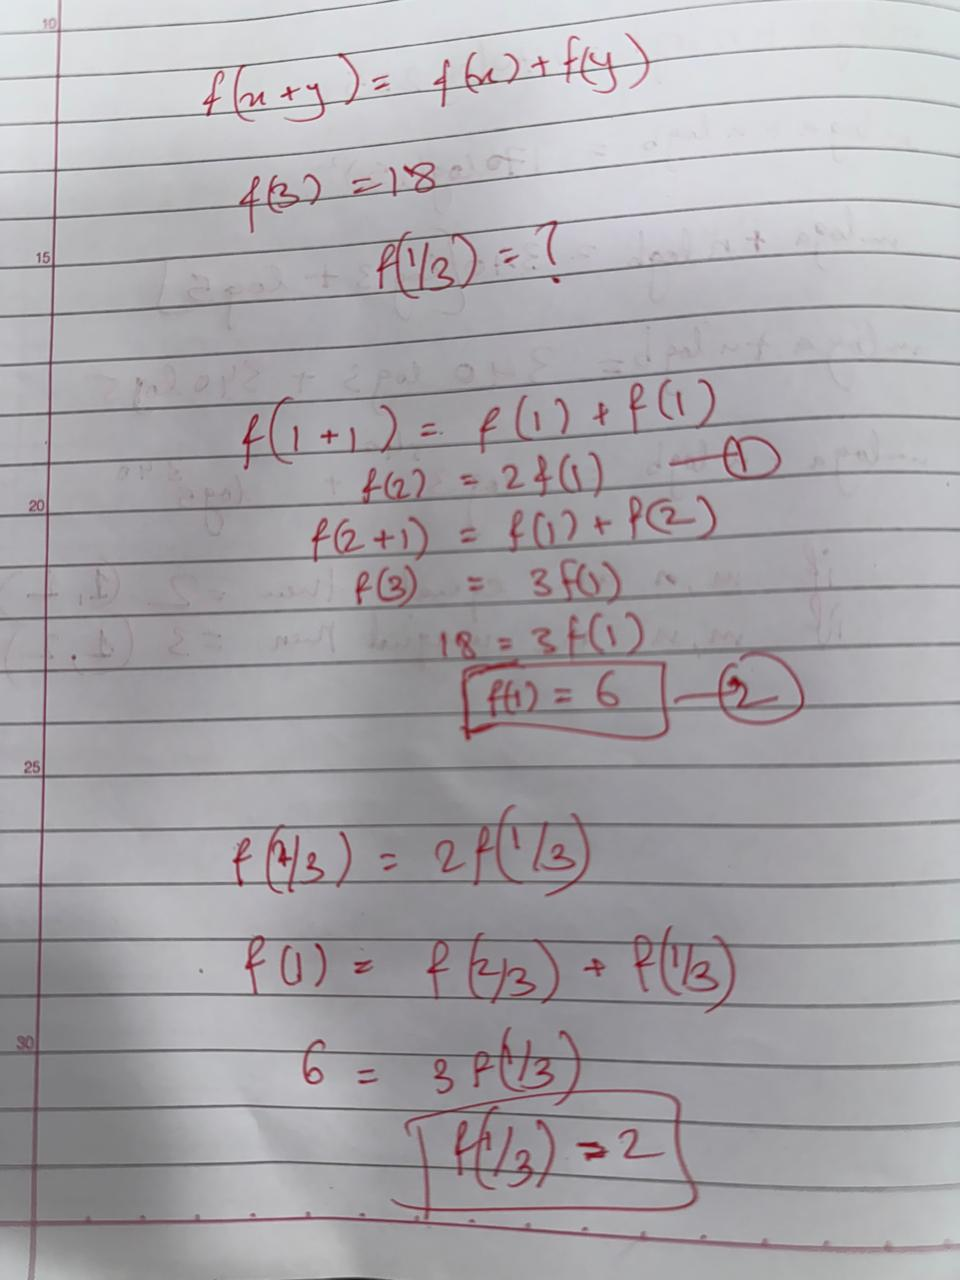 10
f(x+y) = f(x) + f(y)
f(3) = 18
15
f(1/3) = ?
f(1+1) = f(1) + f(1)
f(2) = 2f(1) — ①
20
f(2+1) = f(1) + f(2)
f(3) = 3f(1)
18 = 3f(1)
f(1) = 6 — ②
25
f(2/3) = 2f(1/3)
f(1) = f(2/3) + f(1/3)
30
6 = 3f(1/3)
f(1/3) = 2